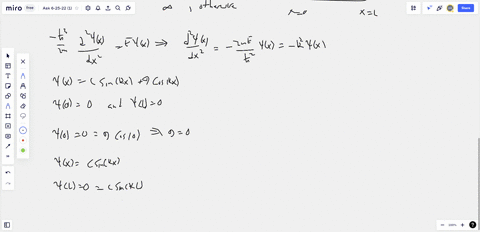 miro free Ask 6-25-22 (1)
Share
∞, otherwise x=0 x=L
-ħ²/2m d²Ψ(x)/dx² = EΨ(x) ⇒ d²Ψ(x)/dx² = -2mE/ħ² Ψ(x) = -k²Ψ(x)
Ψ(x) = C Sin(kx) + D Cos(kx)
Ψ(0) = 0 and Ψ(L) = 0
Ψ(0) = 0 = D Cos(0) ⇒ D = 0
Ψ(x) = C Sin(kx)
Ψ(L) = 0 = C Sin(kL)